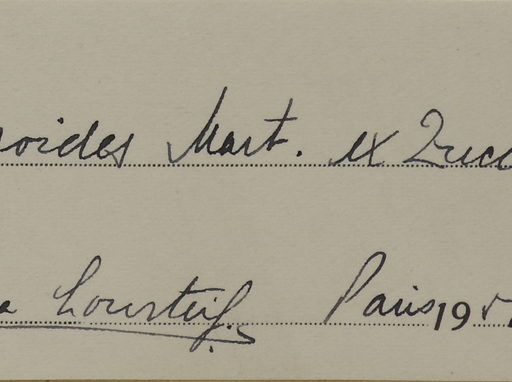 oides Mart. ex Zucc
a Lourteig. Paris 195